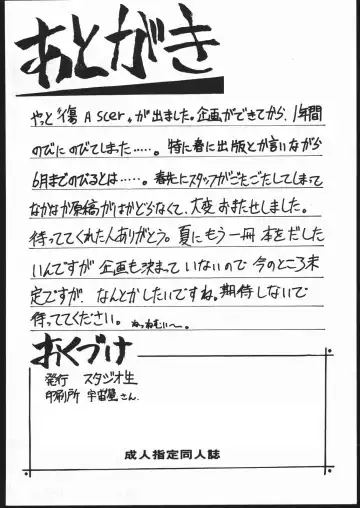 あとがき
やっと"傷 A scar"が出ました。企画ができてから、1年間
のびにのびてしまった……。特に春に出版とか言いながら
6月までのびるとは……。春先にスタッフがごたごたしてしまって
なかなか原稿がはかどらなくて、大変おまたせしました。
待っててくれた人ありがとう。夏にもう一冊本をだした
いんですが企画も決まっていないので今のところ未
定ですが、なんとかしたいですね。期待しないで
待っててください。
おくづけ
発行 スタジオ生
印刷所 宇宙屋さん
成人指定同人誌